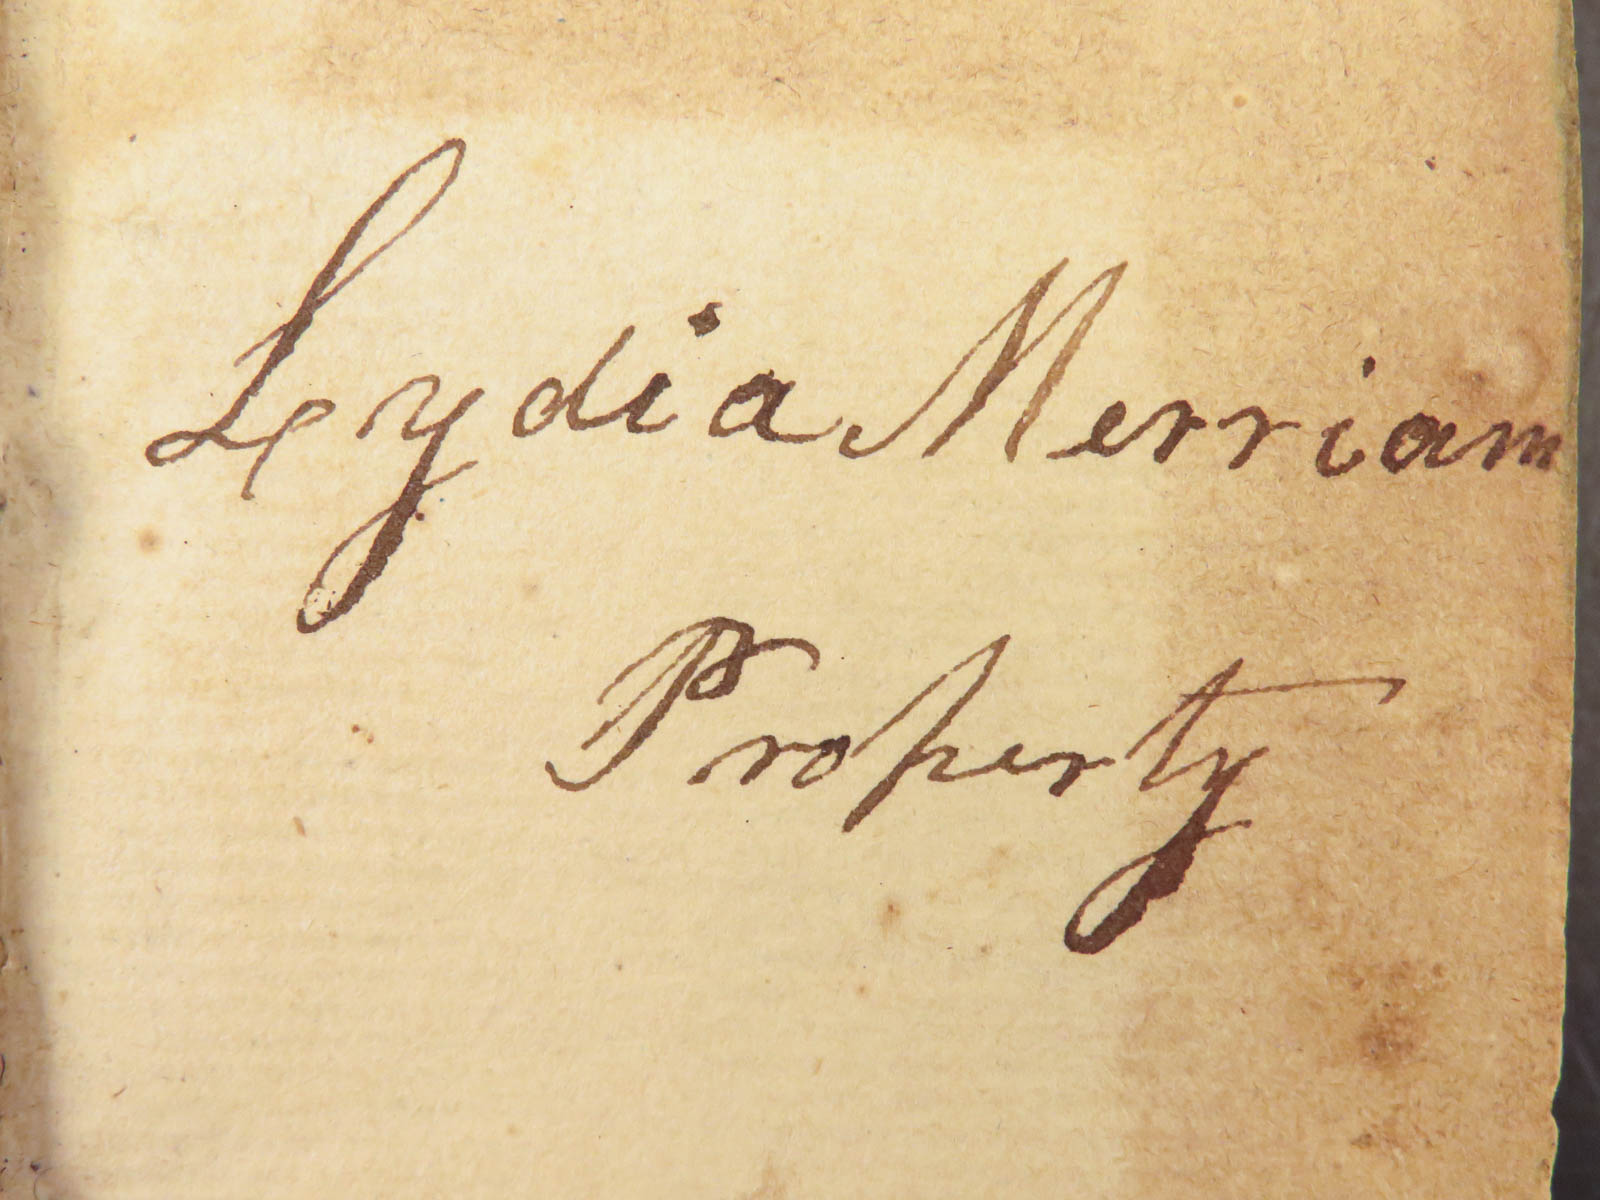 Lydia Merriam
Property